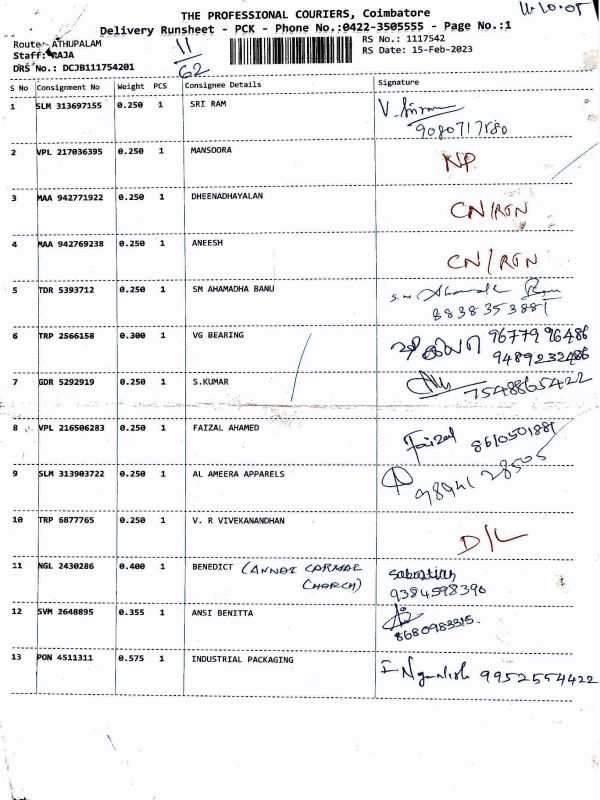 THE PROFESSIONAL COURIERS, Coimbatore
Delivery Runsheet - PCK - Phone No.:0422-3505555 - Page No.:1
Route: ATHUPALAM
Staff: RAJA
DRS No.: DCJB111754201
11
62
RS No.: 1117542
RS Date: 15-Feb-2023
S No Consignment No Weight PCS Consignee Details Signature
1 SLM 313697155 0.250 1 SRI RAM
2 VPL 217036395 0.250 1 MANSOORA NP
3 MAA 942771922 0.250 1 DHEENADHAYALAN CN/RTN
4 MAA 942769238 0.250 1 ANEESH CN/RTN
5 TDR 5393712 0.250 1 SM AHAMADHA BANU
8838353881
6 TRP 2566158 0.300 1 VG BEARING 9677996486
9489232486
7 GDR 5292919 0.250 1 S.KUMAR 7548865422
8 VPL 216506283 0.250 1 FAIZAL AHAMED Faizal 8610501881
9 SLM 313903722 0.250 1 AL AMEERA APPARELS 9894128505
10 TRP 6877765 0.250 1 V. R VIVEKANANDHAN D/L
11 NGL 2430286 0.400 1 BENEDICT (ANNAI CARMAL Sabastian
CHURCH) 9384598396
12 SVM 2648895 0.355 1 ANSI BENITTA
8680983315.
13 PON 4511311 0.575 1 INDUSTRIAL PACKAGING 9952554422